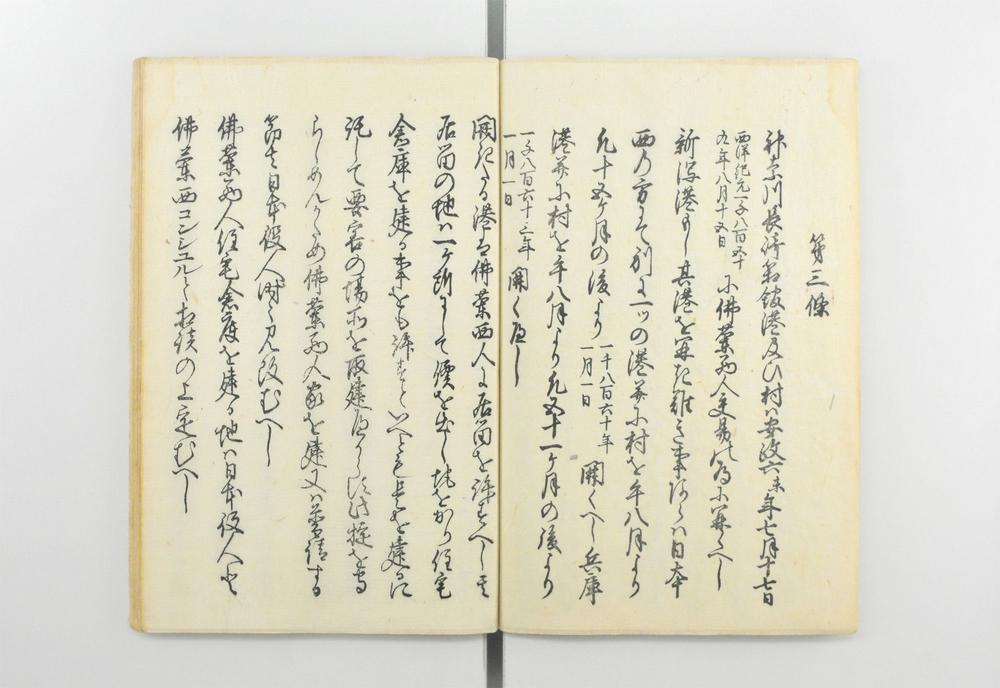 第三條
神奈川長崎箱館港及ひ村ハ安政六未年七月十七日
西洋紀元一千八百五十
九年八月十五日
に佛蘭西人交易の為に開くへし
新潟港もし其港を開き難き事あらハ日本
西の方にて別に一ツの港并に村を午八月より
凡十五ヶ月の後より
一千八百六十年
一月一日
開くへし兵庫
港并に村を午八月より凡五十一ヶ月の後より
一千八百六十三年
一月一日
開くへし
開きたる港は佛蘭西人に居留を許すへし其
居留の地ハ一ヶ所にして價を出し地をかり住宅
倉庫を建る事をも許すといへとも是を建るに
託して要害の場所を取建へからす此掟を守
らしめんかため佛蘭西人家を建又ハ普請する
節は日本役人時々見改むへし
佛蘭西人住宅倉庫を建る地ハ日本役人と
佛蘭西コンシユルと相談の上定むへし